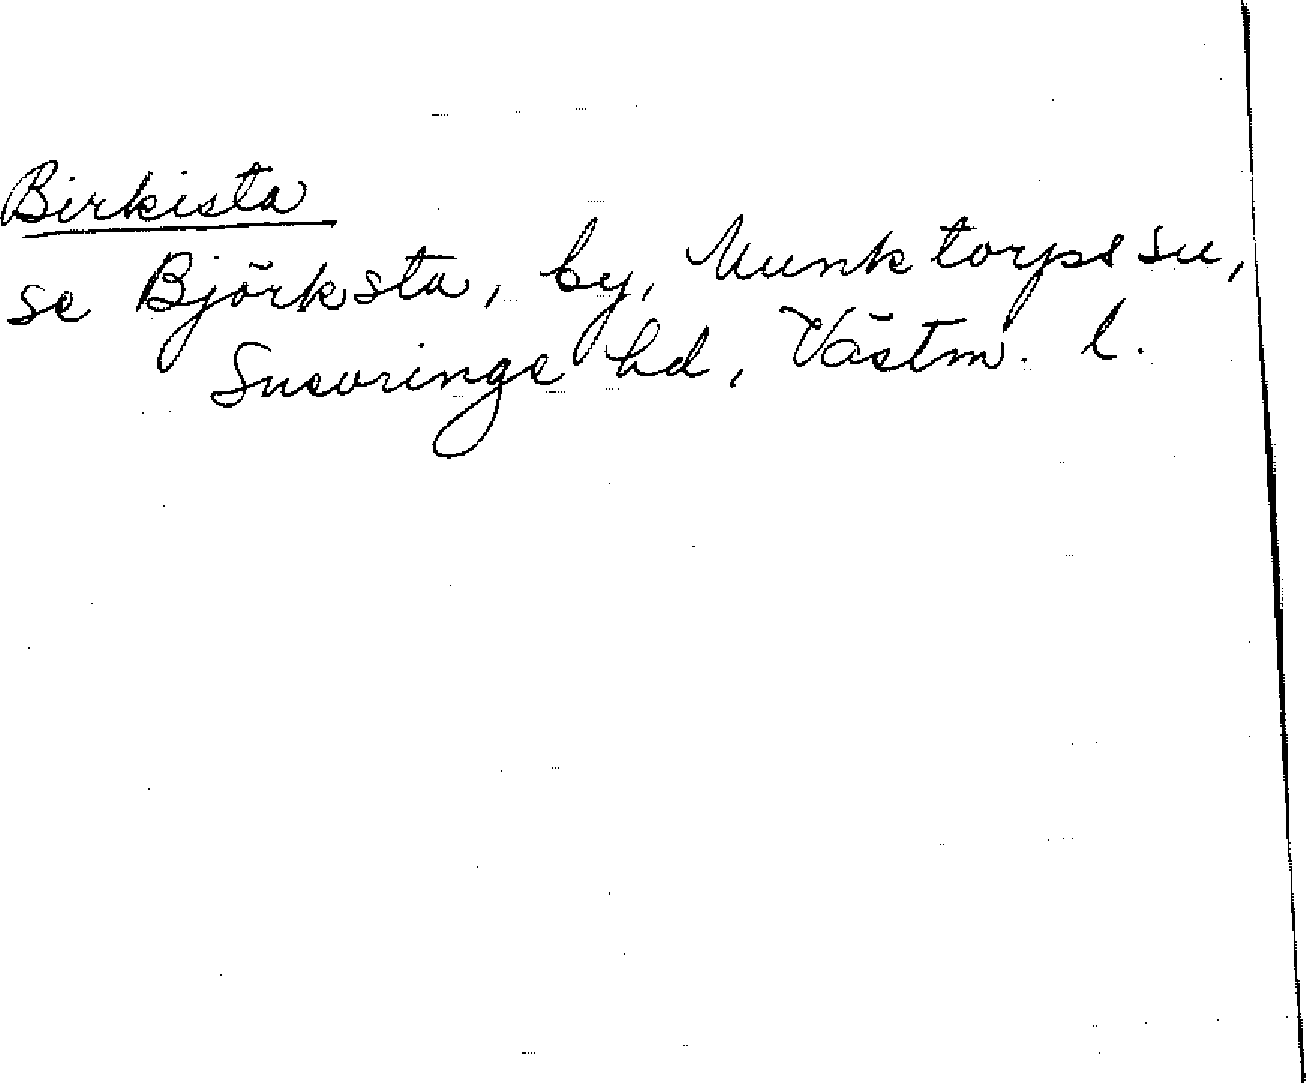 Birkista
se Björksta, by, Munktorps sn,
Snevringe hd, Västm. l.